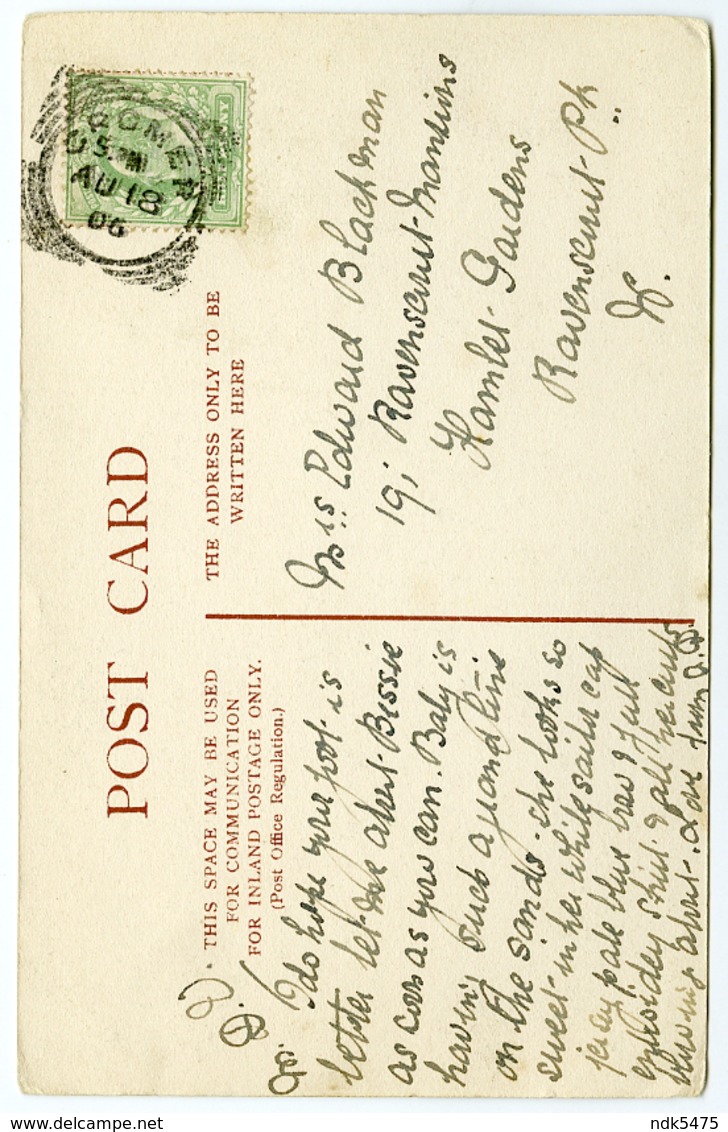 POST CARD
THIS SPACE MAY BE USED
FOR COMMUNICATION
FOR INLAND POSTAGE ONLY.
(Post Office Regulation.)
THE ADDRESS ONLY TO BE
WRITTEN HERE
CROMER
5 PM
AU 18
06
I do hope your foot is
better let me about Bessie
as soon as you can. Baby is
having such a grand time
on the sands. She looks so
sweet in her white sailor cap
jersey pale blue & full
embroidery skirt & all her curls
blowing about. Love from
Mrs Edward Blackman
19, Ravenscourt Mansions
Hamlet Gardens
Ravenscourt Pk
W.
Delcampe.net
ndk5475